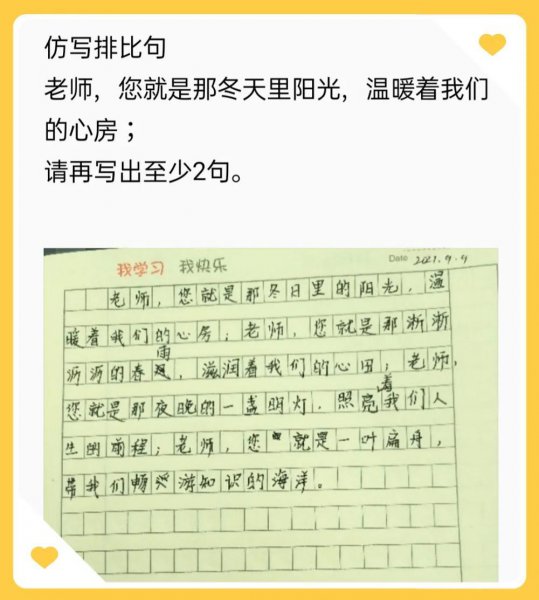 仿写排比句
老师，您就是那冬天里阳光，温暖着我们
的心房；
请再写出至少2句。
我学习 我快乐
Date 2021.9.9
老师，您就是那冬日里的阳光，温
暖着我们的心房；老师，您就是那淅淅
沥沥的春雨，滋润着我们的心田；老师，
您就是那夜晚的一盏明灯，照亮着我们人
生的前程；老师，您就是一叶扁舟，
带我们畅游知识的海洋。